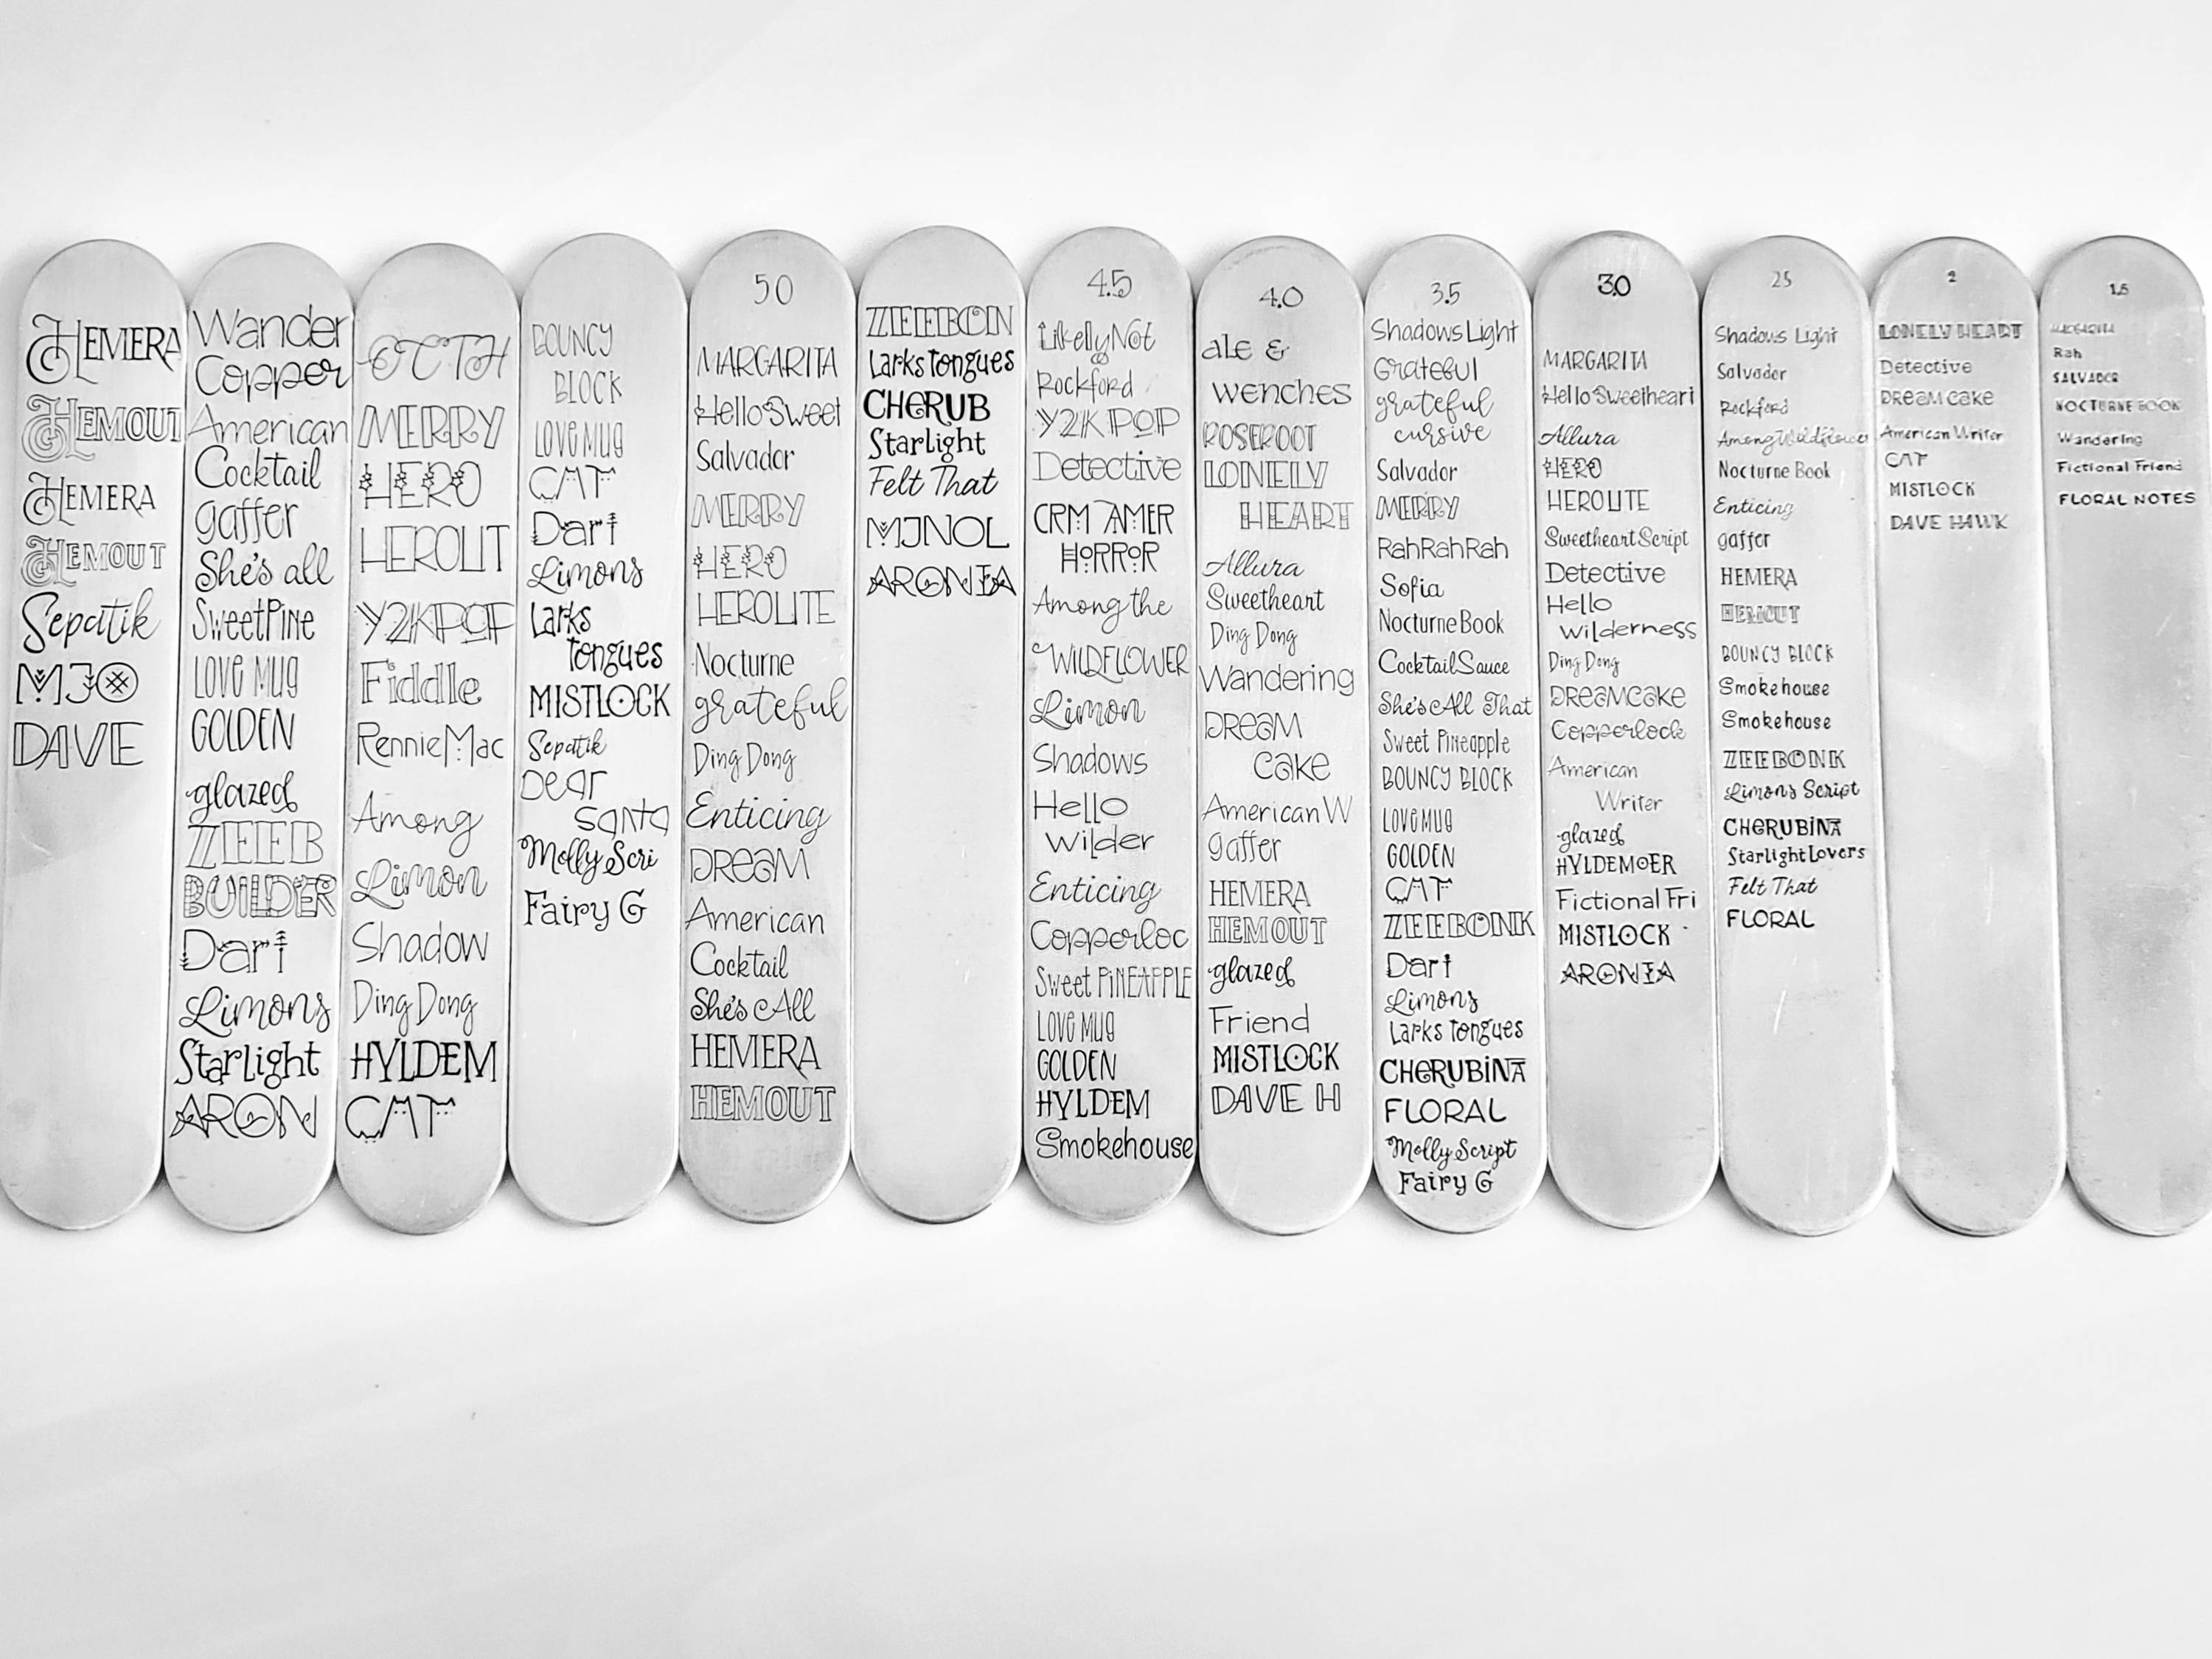 HEMERA
HEMOUT
HEMERA
HEMOUT
Sepatik
MJO
DAVE
Wander
Copper
American
Cocktail
gaffer
She's all
SweetPine
LOVE MUG
GOLDEN
glazed
ZEEB
BUILDER
Dart
Limons
Starlight
ARON
OCTH
MERRY
HERO
HEROLIT
Y2KPOP
Fiddle
RennieMac
Among
Limon
Shadow
Ding Dong
HYLDEM
CAT
BOUNCY
BLOCK
LOVE MUG
CAT
Dart
Limons
Larks
tongues
MISTLOCK
Sepatik
Dear
Santa
Molly Scri
Fairy G
50
MARGARITA
HelloSweet
Salvador
MERRY
HERO
HEROLITE
Nocturne
grateful
Ding Dong
Enticing
DREAM
American
Cocktail
She's All
HEMERA
HEMOUT
ZEEBON
Larks tongues
CHERUB
Starlight
Felt That
MJNOL
ARONIA
4.5
LikelyNot
Rockford
Y2K POP
Detective
CRM AMER
HORROR
Among the
WILDFLOWER
Limon
Shadows
Hello
Wilder
Enticing
Copperloc
Sweet PINEAPPLE
LOVE MUG
GOLDEN
HYLDEM
Smokehouse
4.0
ale &
wenches
ROSEROOT
LONELY
HEART
Allura
Sweetheart
Ding Dong
Wandering
DREAM
Cake
American W
gaffer
HEMERA
HEMOUT
glazed
Friend
MISTLOCK
DAVE H
3.5
Shadows Light
Grateful
grateful
cursive
Salvador
MERRY
RahRahRah
Sofia
Nocturne Book
Cocktail Sauce
She's All That
Sweet Pineapple
BOUNCY BLOCK
LOVE MUG
GOLDEN
CAT
ZEEBONK
Dart
Limons
Larks Tongues
CHERUBINA
FLORAL
Molly Script
Fairy G
30
MARGARITA
Hello Sweetheart
Allura
HERO
HEROLITE
Sweetheart Script
Detective
Hello
Wilderness
Ding Dong
DREAMCAKE
Copperlock
American
Writer
glazed
HYLDEMOER
Fictional Fri
MISTLOCK
ARONIA
25
Shadows Light
Salvador
Rockford
Among Wildflower
Nocturne Book
Enticing
gaffer
HEMERA
HEMOUT
BOUNCY BLOCK
Smokehouse
Smokehouse
ZEEBONK
Limons Script
CHERUBINA
Starlight Lovers
Felt That
FLORAL
2
LONELY HEART
Detective
DREAM CAKE
American Writer
CAT
MISTLOCK
DAVE HAWK
1.5
MARGARITA
Rah
SALVADOR
NOCTURNE BOOK
Wandering
Fictional Friend
FLORAL NOTES